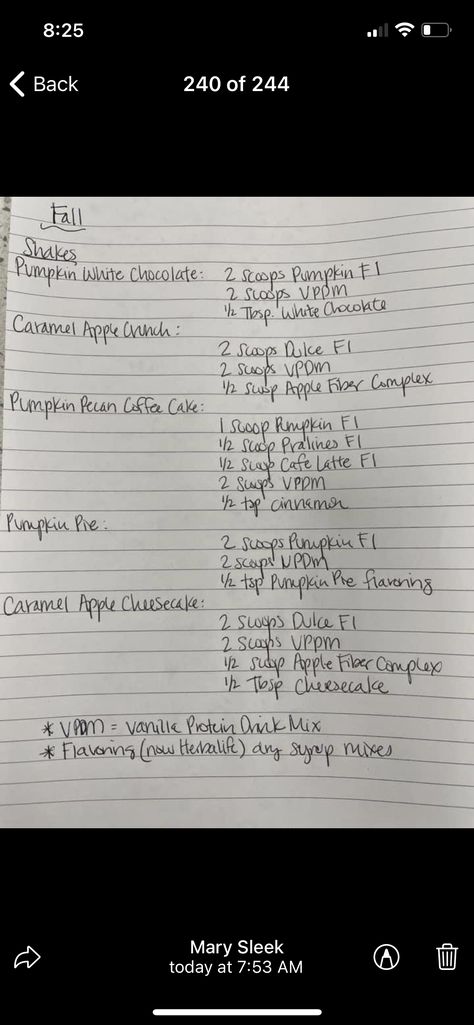 8:25
Back
240 of 244
Fall
Shakes
Pumpkin White Chocolate: 2 scoops Pumpkin F1
2 scoops VPDM
1/2 Tbsp. White Chocolate
Caramel Apple Crunch:
2 scoops Dulce F1
2 scoops VPDM
1/2 scoop Apple Fiber Complex
Pumpkin Pecan Coffee Cake:
1 scoop Pumpkin F1
1/2 scoop Pralines F1
1/2 scoop Cafe Latte F1
2 scoops VPDM
1/2 tsp cinnamon
Pumpkin Pie:
2 scoops Pumpkin F1
2 scoops VPDM
1/2 tsp Pumpkin Pie flavoring
Caramel Apple Cheesecake:
2 scoops Dulce F1
2 scoops VPDM
1/2 scoop Apple Fiber Complex
1/2 Tbsp Cheesecake
* VPDM = Vanilla Protein Drink Mix
* Flavoring (non Herbalife) dry syrup mixes
Mary Sleek
today at 7:53 AM